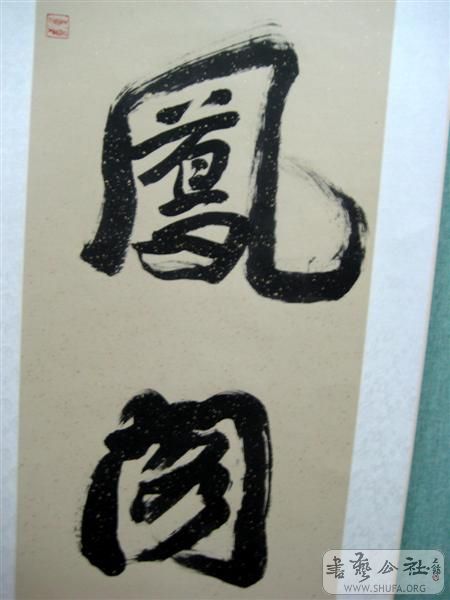 鳳
閣
書藝公社
WWW.SHUFA.ORG